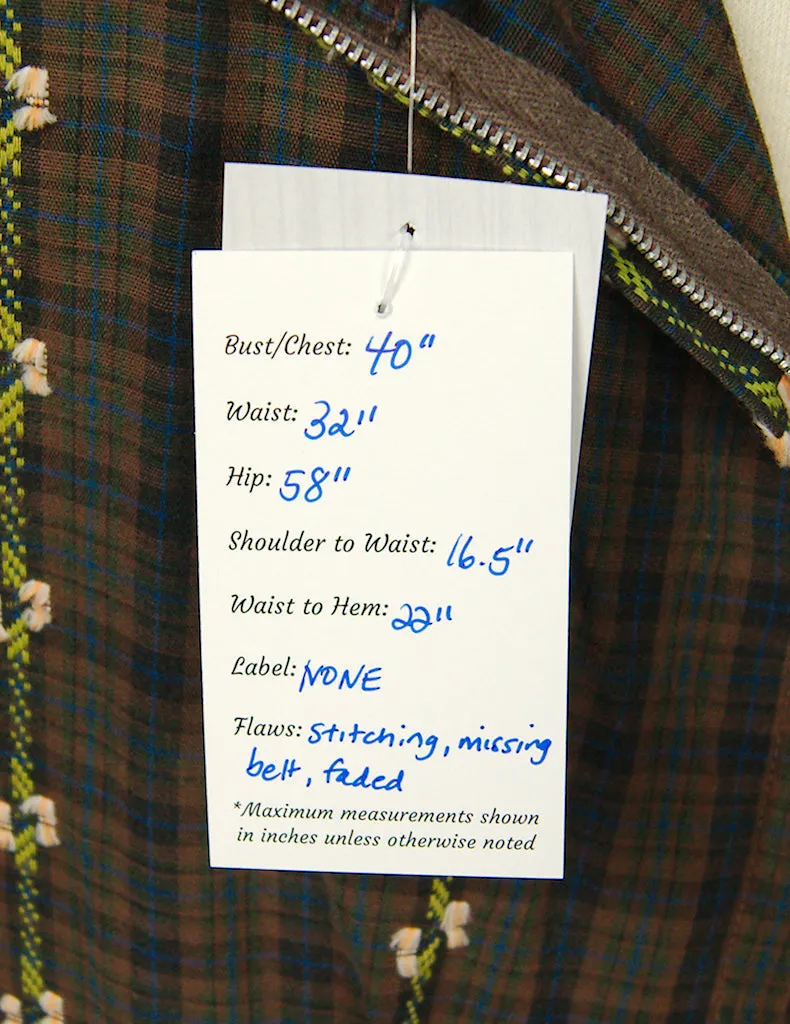 Bust/Chest: 40"
Waist: 32"
Hip: 58"
Shoulder to Waist: 16.5"
Waist to Hem: 22"
Label: NONE
Flaws: stitching, missing
belt, faded
*Maximum measurements shown
in inches unless otherwise noted